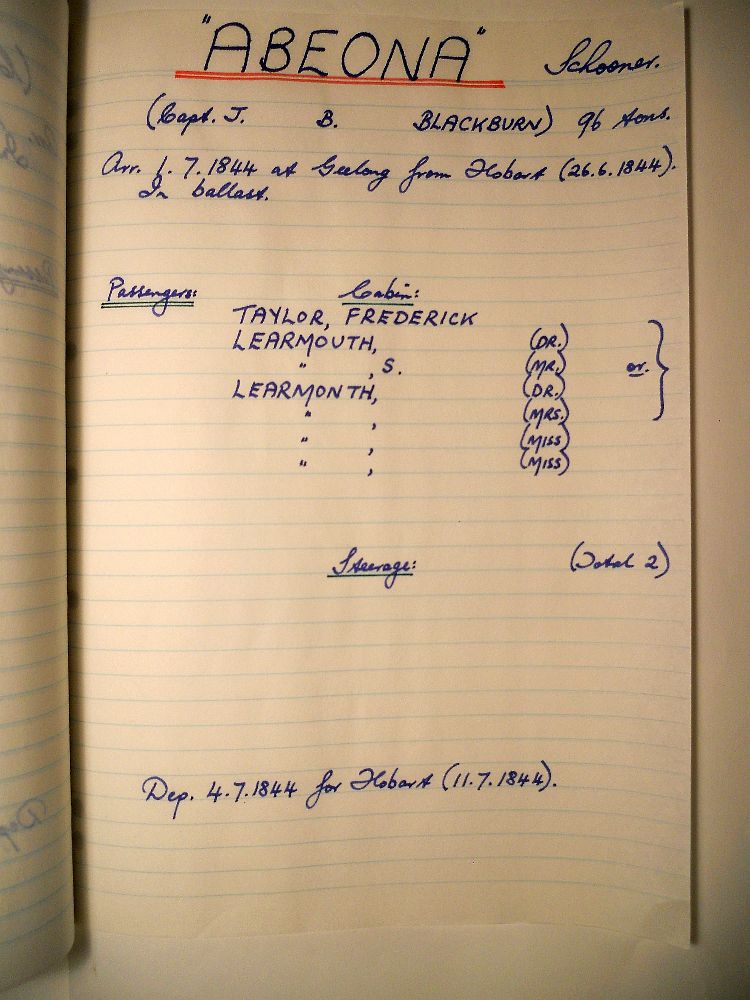 "ABEONA" Schooner.
(Capt. J. B. BLACKBURN) 96 tons.
Arr. 1.7.1844 at Geelong from Hobart (26.6.1844).
In ballast.
Passengers: Cabin:
TAYLOR, FREDERICK
LEARMOUTH, (DR.)
" , S. (MR.) or.
LEARMONTH, (DR.)
" , (MRS.)
" , (MISS)
" , (MISS)
Steerage: (Total 2)
Dep. 4.7.1844 for Hobart (11.7.1844).